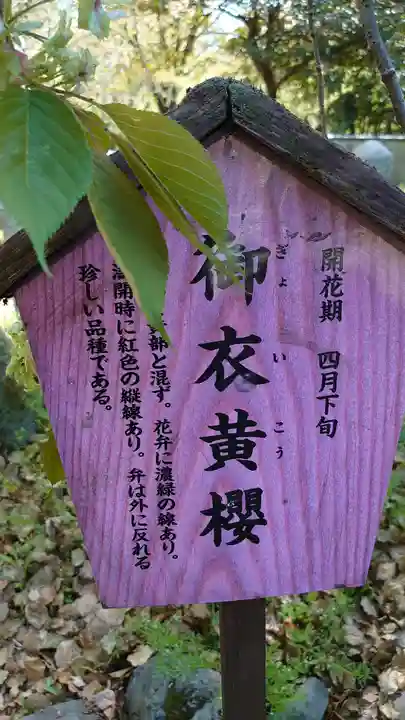 開花期 四月下旬
御衣黄櫻
ぎょいこう
部と混ず。花弁に濃緑の線あり。
開時に紅色の縦線あり。弁は外に反れる
珍しい品種である。